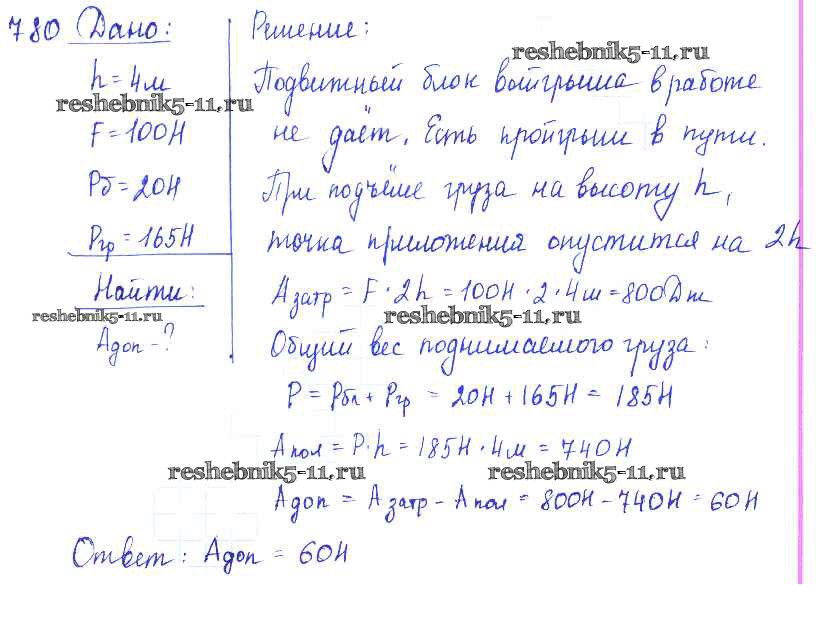 780 Дано:
h = 4м
F = 100Н
Pб = 20Н
Pгр = 165Н
Найти:
Aдоп - ?
Решение:
Подвижный блок выйгрыша в работе
не даёт. Есть пройгрыш в пути.
При подъёме груза на высоту h,
точка приложения опустится на 2h
Aзатр = F · 2h = 100Н · 2 · 4м = 800Дж
Общий вес поднимаемого груза:
P = Pбл + Pгр = 20Н + 165Н = 185Н
Aпол = P·h = 185Н · 4м = 740Н
Aдоп = Aзатр - Aпол = 800Н - 740Н = 60Н
Ответ: Aдоп = 60Н
reshebnik5-11.ru
reshebnik5-11.ru
reshebnik5-11.ru
reshebnik5-11.ru
reshebnik5-11.ru
reshebnik5-11.ru